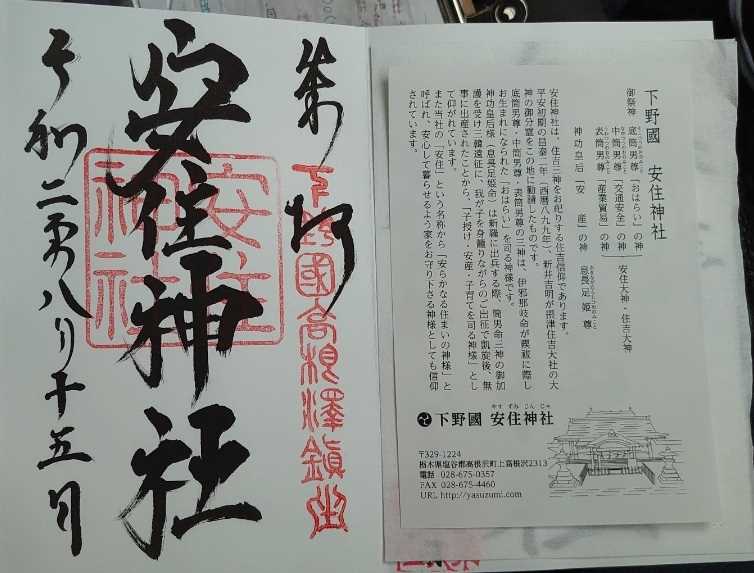 奉拝
下野國高根澤鎮坐
安住神社
安住神社
令和二年八月十五日
下野國 安住神社
御祭神 底筒男尊「おはらい」の神
中筒男尊「交通安全」の神
表筒男尊「産業貿易」の神
安住大神・住吉大神
神功皇后「安 産」の神 息長足姫尊
安住神社は、住吉三神をお祀りする住吉信仰であります。
平安初期の昌泰二年(西暦八九九年)、新井吉明が摂津住吉大社の大
神の御分霊をこの地に勧請したものです。
底筒男尊・中筒男尊・表筒男尊の三神は、伊邪那岐命が禊祓に際し
お生まれになられた「おはらい」を司る神様です。
神功皇后様(息長足姫命)は新羅に出兵する際、筒男命三神の御加
護を受け韓遠征に、我が子を身籠りながらのご出征で凱旋後、無
事に出産されたことから、「子授け・安産・子育てを司る神様」とし
て仰がれています。
また当社の「安住」という名称から「安らかなる住まいの神様」と
呼ばれ、安心して暮らせるよう家をお守り下さる神様としても信仰
されています。
やす ずみ じん じゃ
下野國 安住神社
〒329-1224
栃木県塩谷郡高根沢町上高根沢2313
電話 028-675-0357
FAX 028-675-4460
URL http://yasuzumi.com